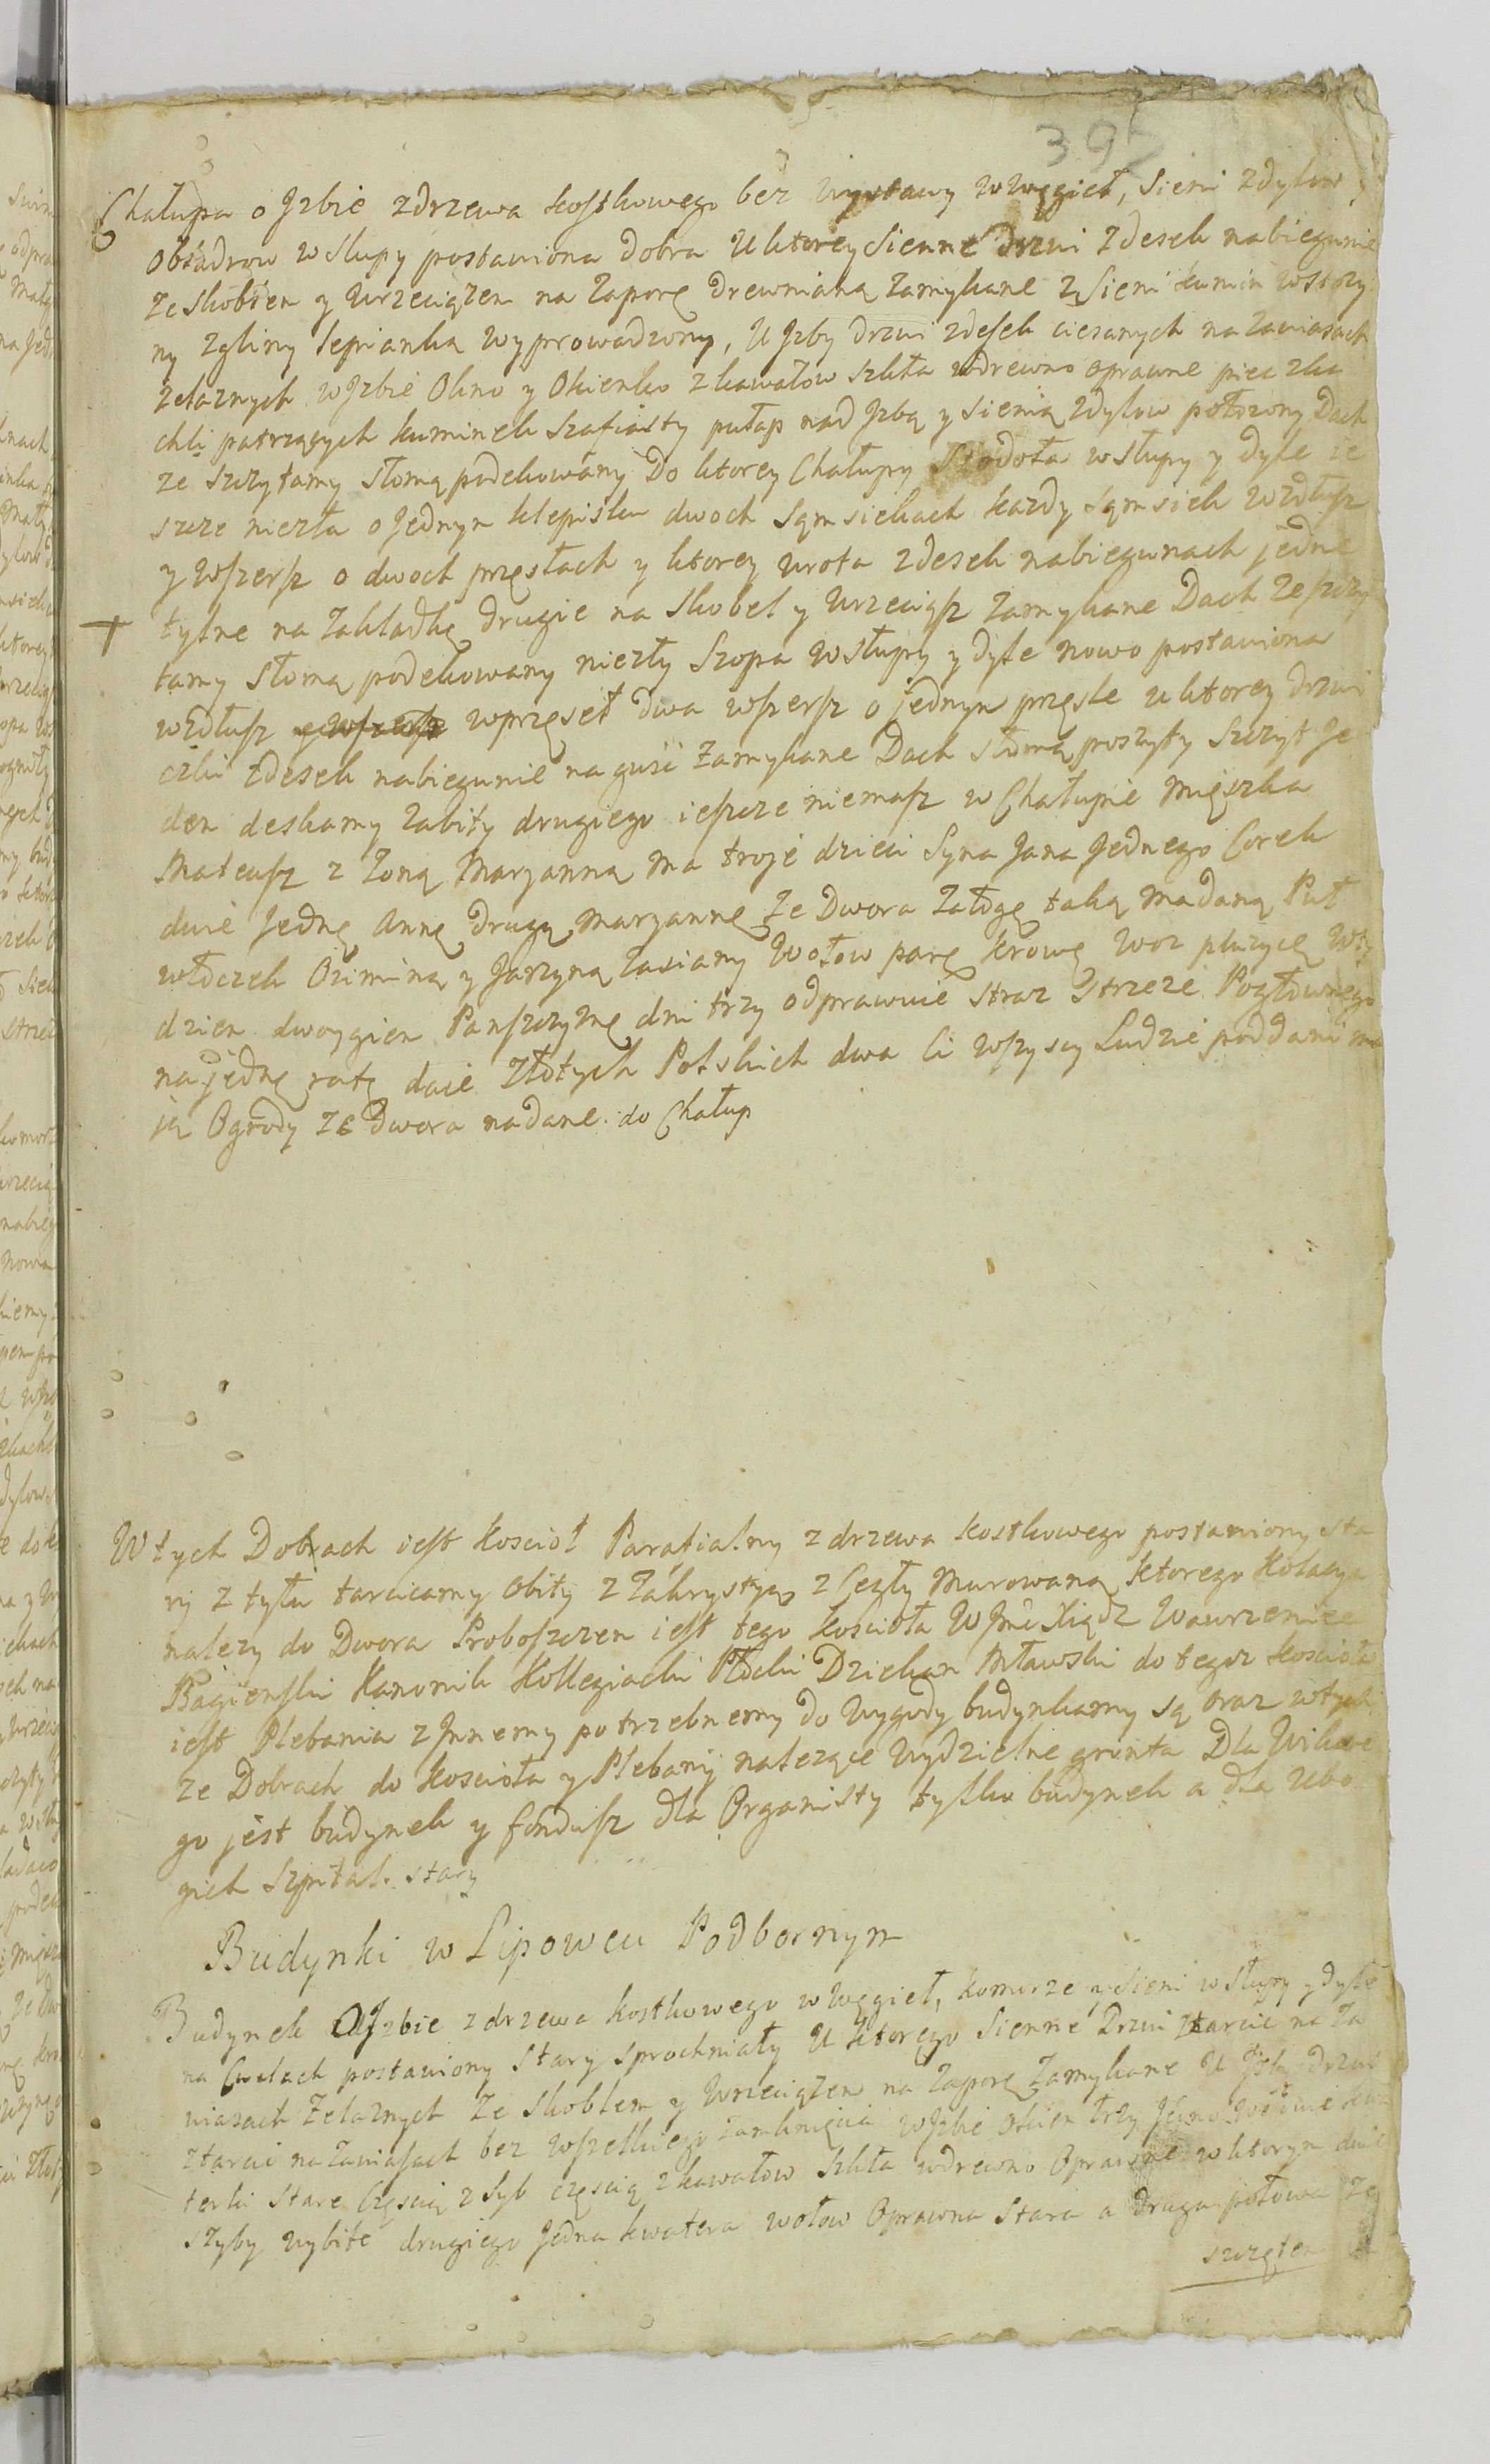 39
Chałupa o Jzbie zdrzewa kostkowego bez wystawy wwęgieł, Sieni zdylow y
obsadrow w Słupy postawiona dobra U ktorey Sienne drzwi zdesek nabiegunie
ze Skoblem y Wrzeciązem na Zaporę drewnianą zamykane z Sieni kumin wstoży
ny zgliny lepianką wyprowadzony, U Jzby drzwi zdesek ciesanych na zawiasach
zelaznych w Jzbie Okno y Okienko zkawałow szkła wdrewno oprawne piec zka
chli patrzących kuminek Szafiasty pułap nad Jzbą y Sienią zdylow położony Dach
ze szczytamy słomą podekowany Do ktorey Chałupy Stodoła w słupy y dyle ie
szcze niezła o Jednym klepisku dwoch Sąmsiekach kazdy Sąmsiek wzdłusz
y Wszersz o dwoch przęsłach y ktorey wrota zdesek nabiegunach jedne
tylne na zakładkę drugie na Skobel y wrzeciąsz zamykane Dach ze szczy
tamy słomą podekowany niezły Szopa w słupy y dyle nowo postawiona
wzdłusz wprzęseł dwa wszersz o jednym przęśle u ktorey drzwi
czki zdesek nabiegunie naguść zamykane Dach słomą poszyty Szczyt Je
den deskamy zabity drugiego ieszcze niemasz w Chałupie Mięszka
Mateusz z Zoną Maryanną ma troje dzieci Syna Jana Jednego Corek
dwie Jednę Annę drugą Maryannę Ze Dwora Załogę taką ma daną Puł
włoczek Oziminą y Jarzyną zasiany Wołow parę krowę woz płuzycę Wty
dzien dwoygiem Panszczyznę dni trzy odprawuie straz strzeze Pogłownego
na jednę ratę daie złotych Polskich dwa Ci wszyscy Ludzie poddani ma
ją Ogrody ze Dwora nadane do Chałup
W tych Dobrach iest kościoł Parafialny z drzewa kostkowego postawiony sta
ry z tyłu tarcicamy obity z Zakrystyą z Cegły murowaną ktorego Kolacya
nalezy do Dwora Proboszczem iest tego kościoła WJmć Xiądz Wawrzeniec
Bagieński Kanonik Kollegiacki Płocki Dziekan Mławski do tegoz kościoła
iest Plebania z Jnnemy potrzebnemy do wygody budynkamy są oraz wtych
ze Dobrach do kościoła y Plebanij nalezące wydzielne grunta Dla Wikare
go jest budynek y fundusz dla Organisty tylko budynek a dla Ubo
gich Szpital stary
Budynki w Lipowcu Podbornym
Budynek O Jzbie zdrzewa kostkowego wwęgieł, komorze y Sieni w słupy y dyle
na Culach postawiony stary sprochniały U ktorego Sienne Drzwi ztarcic na Za
wiasach Zelaznych ze Skoblem y Wrzeciązem na Zaporę zamykane U Jzby drzwi
ztarcic na zawiasach bez wszelkiego zamknięcia w Jzbie Okien trzy Jedno kwa
terki stare Częscią z Syb częscią zkawałow szkła wdrewno Oprawne w ktorym dwie
szyby wybite drugiego Jedna kwatera wołow Oprawna Stara a druga połowa Ze
szczętem